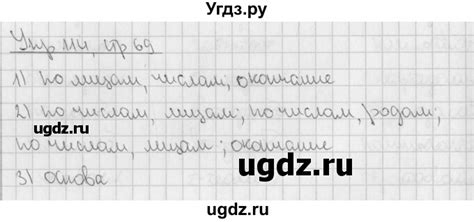 Угдз.ру
Упр 114, стр 69
1) по лицам, числам, окончание
2) по числам, лицам; по числам, родам;
по числам, лицам; окончание
3) основа
ugdz.ru
ugdz.ru